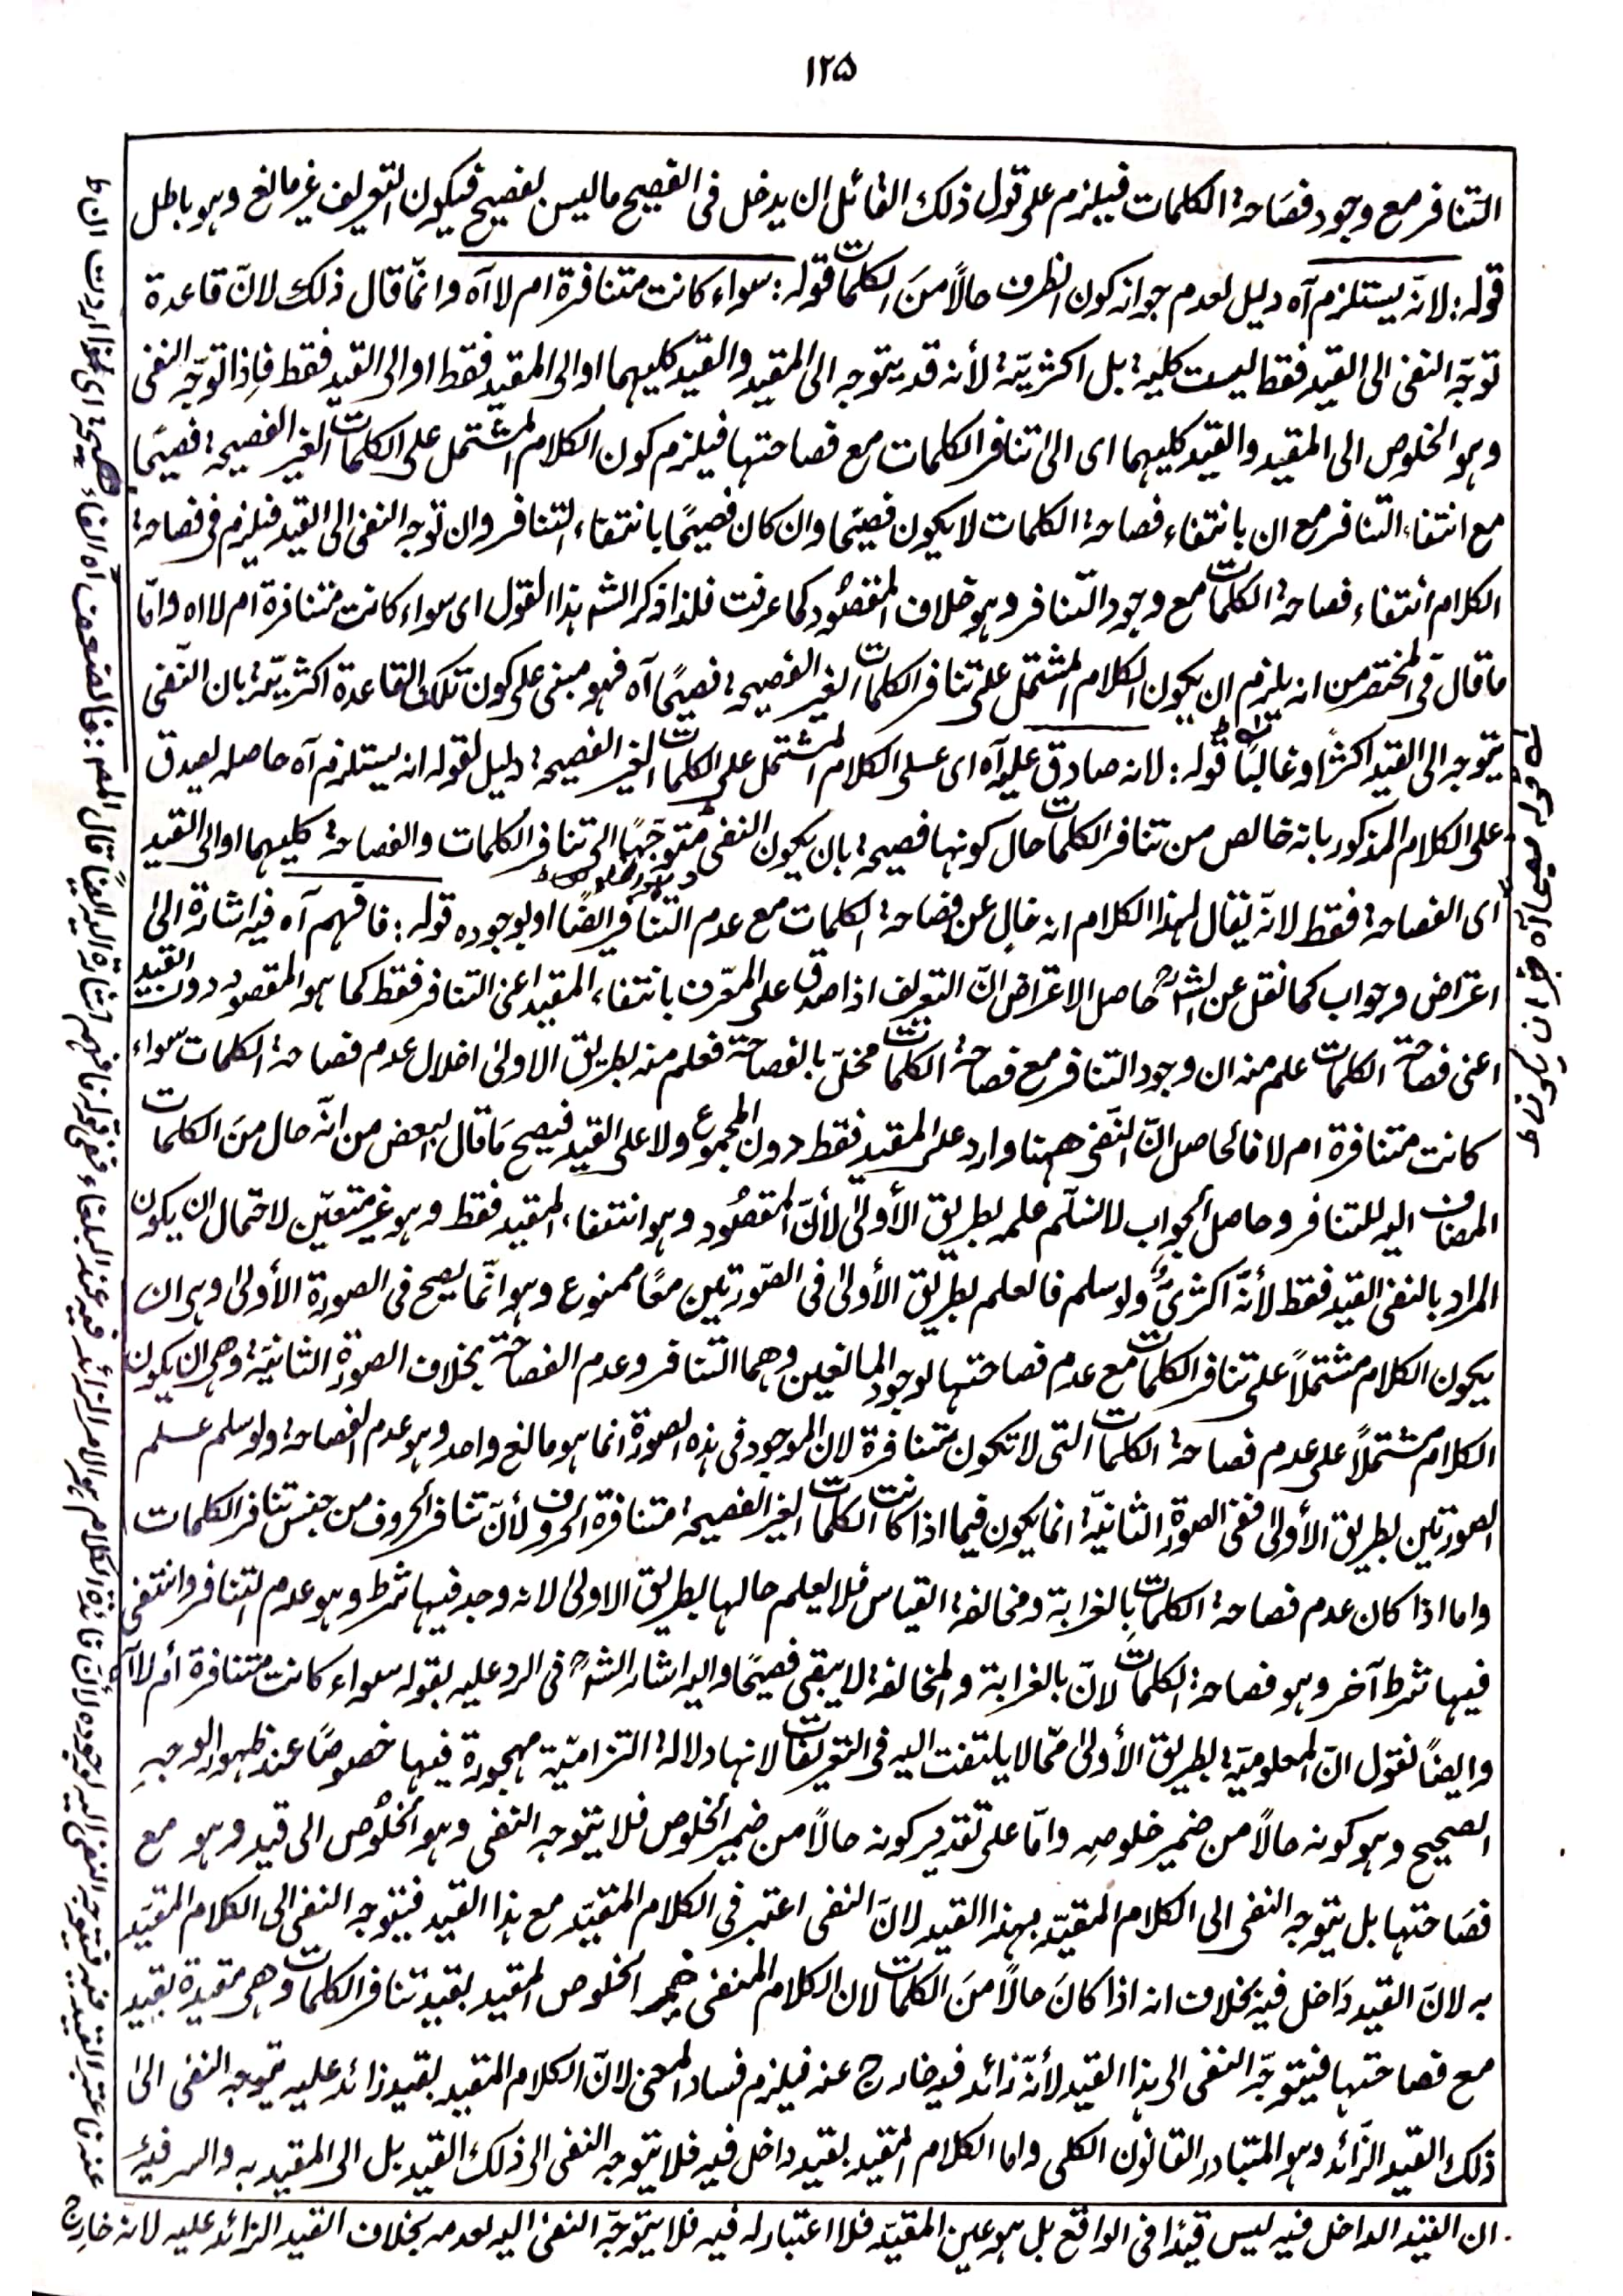 ١٢٥
التنافر مع وجود فصاحة الكلمات فيلزم على قول ذلك القائل ان يدخل فى الفصيح ما ليس بفصيح فيكون التعريف غير مانع وهو باطل
قوله: لانّه يستلزم آه دليل لعدم جواز كون الظرف حالًا منَ الكلمات قوله: سواء كانت متنافرة ام لا آه وانمّا قال ذلك لانّ قاعدة
توجّه النفى الى القيد فقط ليست كلية بل اكثريّة لأنه قد يتوجه الى المقيد والقيد كليهما او الى المقيد فقط او الى القيد فقط فاِذا توجّه النفى
وهو الخلوص الى المقيد والقيد كليهما اى الى تنافر الكلمات مع فصاحتها فيلزم كون الكلام المشتمل على الكلمات الغير الفصيحة فصيحًا
مع انتفاء التنافر مع ان بانتفاء فصاحة الكلمات لا يكون فصيحًا وان كان فصيحًا بانتفاء التنافر وان توجه النفى الى القيد فيلزم فى فصاحة
الكلام انتفاء فصاحة الكلمات مع وجود التنافر وهو خلاف المقصُود كما عرفت فلذا ذكر الشه هذا القول اى سواء كانت متنافرة ام لا اه وامّا
ما قال فى المختصر من انه يلزم ان يكون الكلام المشتمل على تنافر الكلمات الغير الفصيحة فصيحًا آه فهو مبنى على كون تلك القاعدة اكثريّة بان النّفى
يتوجه الى القيد اكثرًا وغالبًا قوله: لانه صادق عليه آه اى على الكلام المشتمل على الكلمات الغير الفصيحة دليل لقوله انه يستلزم آه حاصله يصدق
على الكلام المذكور بانه خالص من تنافر الكلمات حال كونها فصيحة بان يكون النفى متوجّهًا الى تنافر الكلمات والفصاحة كليهما او الى القيد
اى الفصاحة فقط لانّه يقال لهذا الكلام انه خالٍ عن فصاحة الكلمات مع عدم التنافر ايضًا او بوجوده قوله: فافهم آه فيه اشارة الى
اعتراض وجواب كما نقل عن الشه حاصل الاعتراض انّ التعريف اذا صدق على المعّرف بانتفاء المقيد اعنى التنافر فقط كما هو المقصود دون القيد
اعنى فصاحة الكلمات علم منه ان وجود التنافر مع فصاحة الكلمات مخلّ بالفصاحة فعلم منه بطريق الاولى اخلال عدم فصاحة الكلمات سواء
كانت متنافرة ام لا فالحاصل انّ النفى ههنا وارد على المقيد فقط دون المجموع ولا على القيد فيصح مَا قال البعض من انّه حال منَ الكلمات
المضاف اليه للتنافر وحاصل الجواب لا نسلّم علمه بطريق الأولىٰ لأنّ المقصُود وهو انتفاء المقيد فقط وهو غير متعيّن لاحتمال ان يكون
المراد بالنفى القيد فقط لأنّه اكثرىٌّ ولو سلم فالعلم بطريق الأولىٰ فى الصّورتين معًا ممنوع وهو انمّا يصح فى الصورة الأولىٰ وهى ان
يكون الكلام مشتملاً على تنافر الكلمات مع عدم فصاحتها لوجود المانعين وهما التنافر وعدم الفصاحة بخلاف الصورة الثانية وهى ان يكون
الكلام مشتملاً على عدم فصاحة الكلمات التى لا تكون متنافرة لان الموجود فى هذه الصورة انما هو مانع واحد وهو عدم الفصاحة ولو سلم علم
الصورتين بطريق الأولىٰ ففى الصورة الثانيّة انما يكون فيما اذا كانت الكلمات الغير الفصيحة متنافرة الحروف لأنّ تنافر الحروف من جنس تنافر الكلمات
واما اذا كان عدم فصاحة الكلمات بالغرابة ومخالفة القياس فلا يعلم حالها بطريق الاولىٰ لانه وجد فيها شرط وهو عدم التنافر وانتفى
فيها شرط آخر وهو فصاحة الكلمات لانّ بالغرابة والمخالفة لا يبقى فصيحًا واليه اشار الشه فى الرد عليه بقوله سواء كانت متنافرة أم لا آه
وايضًا نقول انّ المعلوميّة بطريق الأولىٰ ممّا لا يلتفت اليه فى التعريفات لانها دلالة التزاميّة مهجورة فيها خصوصًا عند ظهور الوجهِ
الصحيح وهو كونه حالًا من ضمير خلوصِه وامّا على تقدير كونه حالًا من ضمير الخلوص فلا يتوجه النفى وهو الخلُوص الى قيد وهو مع
فصَاحتها بل يتوجه النفى الى الكلام المقيّد بهذا القيد لانّ النفى اعتبر فى الكلام المقيّد مع هذا القيد فيتوجه النفى الى الكلام المقيّد
به لانّ القيد دَاخل فيه بخلاف انه اذا كانَ حالًا منَ الكلمات لان الكلام المنفى الخلوص المقيد بقيد تنافر الكلمات وهى مقيدة بقيد
مع فصاحتها فيتوجّه النفى الى هذا القيد لأنّه زائد فيه خارج عنه فيلزم فساد المعنى لانّ الكلام المقيد بقيد زائد عليه يتوجه النفى الىٰ
ذلك القيد الزّائد وهو المتبادر القانون الكلى واما الكلام المقيد بقيد داخل فيه فلا يتوجه النفى الى ذلك القيد بل الى المقيد به والسر فيه
ان القيد الداخل فيه ليس قيدًا فى الواقع بل هو عين المقيّد فلا اعتبار له فيه فلا يتوجّه النفى اليه لعدمه بخلاف القيد الزائد عليه لانه خارج
قوله فصيحا آه خبر ان يكون